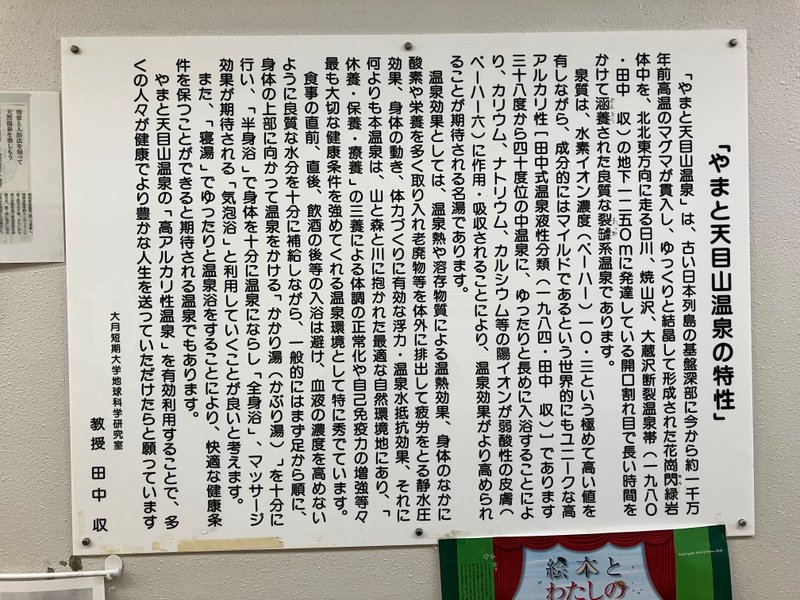 「やまと天目山温泉の特性」
「やまと天目山温泉」は、古い日本列島の基盤深部に今から約一千万
年前高温のマグマが貫入し、ゆっくりと結晶して形成された花崗閃緑岩
体中を、北北東方向に走る日川、焼山沢、大蔵沢断裂温泉帯(一九八〇
・田中 収)の地下一二五〇mに発達している開口割れ目で長い時間を
かけて涵養された良質な裂罅系温泉であります。
泉質は、水素イオン濃度(ペーハー)一〇・三という極めて高い値を
有しながら、成分的にはマイルドであるという世界的にもユニークな高
アルカリ性[田中式温泉液性分類(一九八四・田中 収)]であります
三十八度から四十度位の中温泉に、ゆったりと長めに入浴することによ
り、カリウム、ナトリウム、カルシウム等の陽イオンが弱酸性の皮膚(
ペーハー六)に作用・吸収されることにより、温泉効果がより高められ
ることが期待される名湯であります。
温泉効果としては、温泉熱や溶存物質による温熱効果、身体のなかに
酸素や栄養を多く取り入れ老廃物等を体外に排出して疲労をとる静水圧
効果、身体の動き、体力づくりに有効な浮力・温泉水抵抗効果、それに
何よりも本温泉は、山と森と川に抱かれた最適な自然環境地にあり、「
休養・保養・療養」の三養による体調の正常化や自己免疫力の増強等々
最も大切な健康条件を強めてくれる温泉環境として特に秀でています。
食事の直前、直後、飲酒の後等の入浴は避け、血液の濃度を高めない
ように良質な水分を十分に補給しながら、一般的にはまず足から順に、
身体の上部に向かって温泉をかける「かかり湯(かぶり湯)」を十分に
行い、「半身浴」で身体を十分に温泉にならし「全身浴」、マッサージ
効果が期待される「気泡浴」と利用していくことが良いと考えます。
また、「寝湯」でゆったりと温泉浴をすることにより、快適な健康条
件を保つことができると期待される温泉でもあります。
やまと天目山温泉の「高アルカリ性温泉」を有効利用することで、多
くの人々が健康でより豊かな人生を送っていただけたらと願っています
大月短期大学地球科学研究室
教授 田中 収
効果と入浴法を知って
天然温泉を楽しもう
絵本と
わたしの